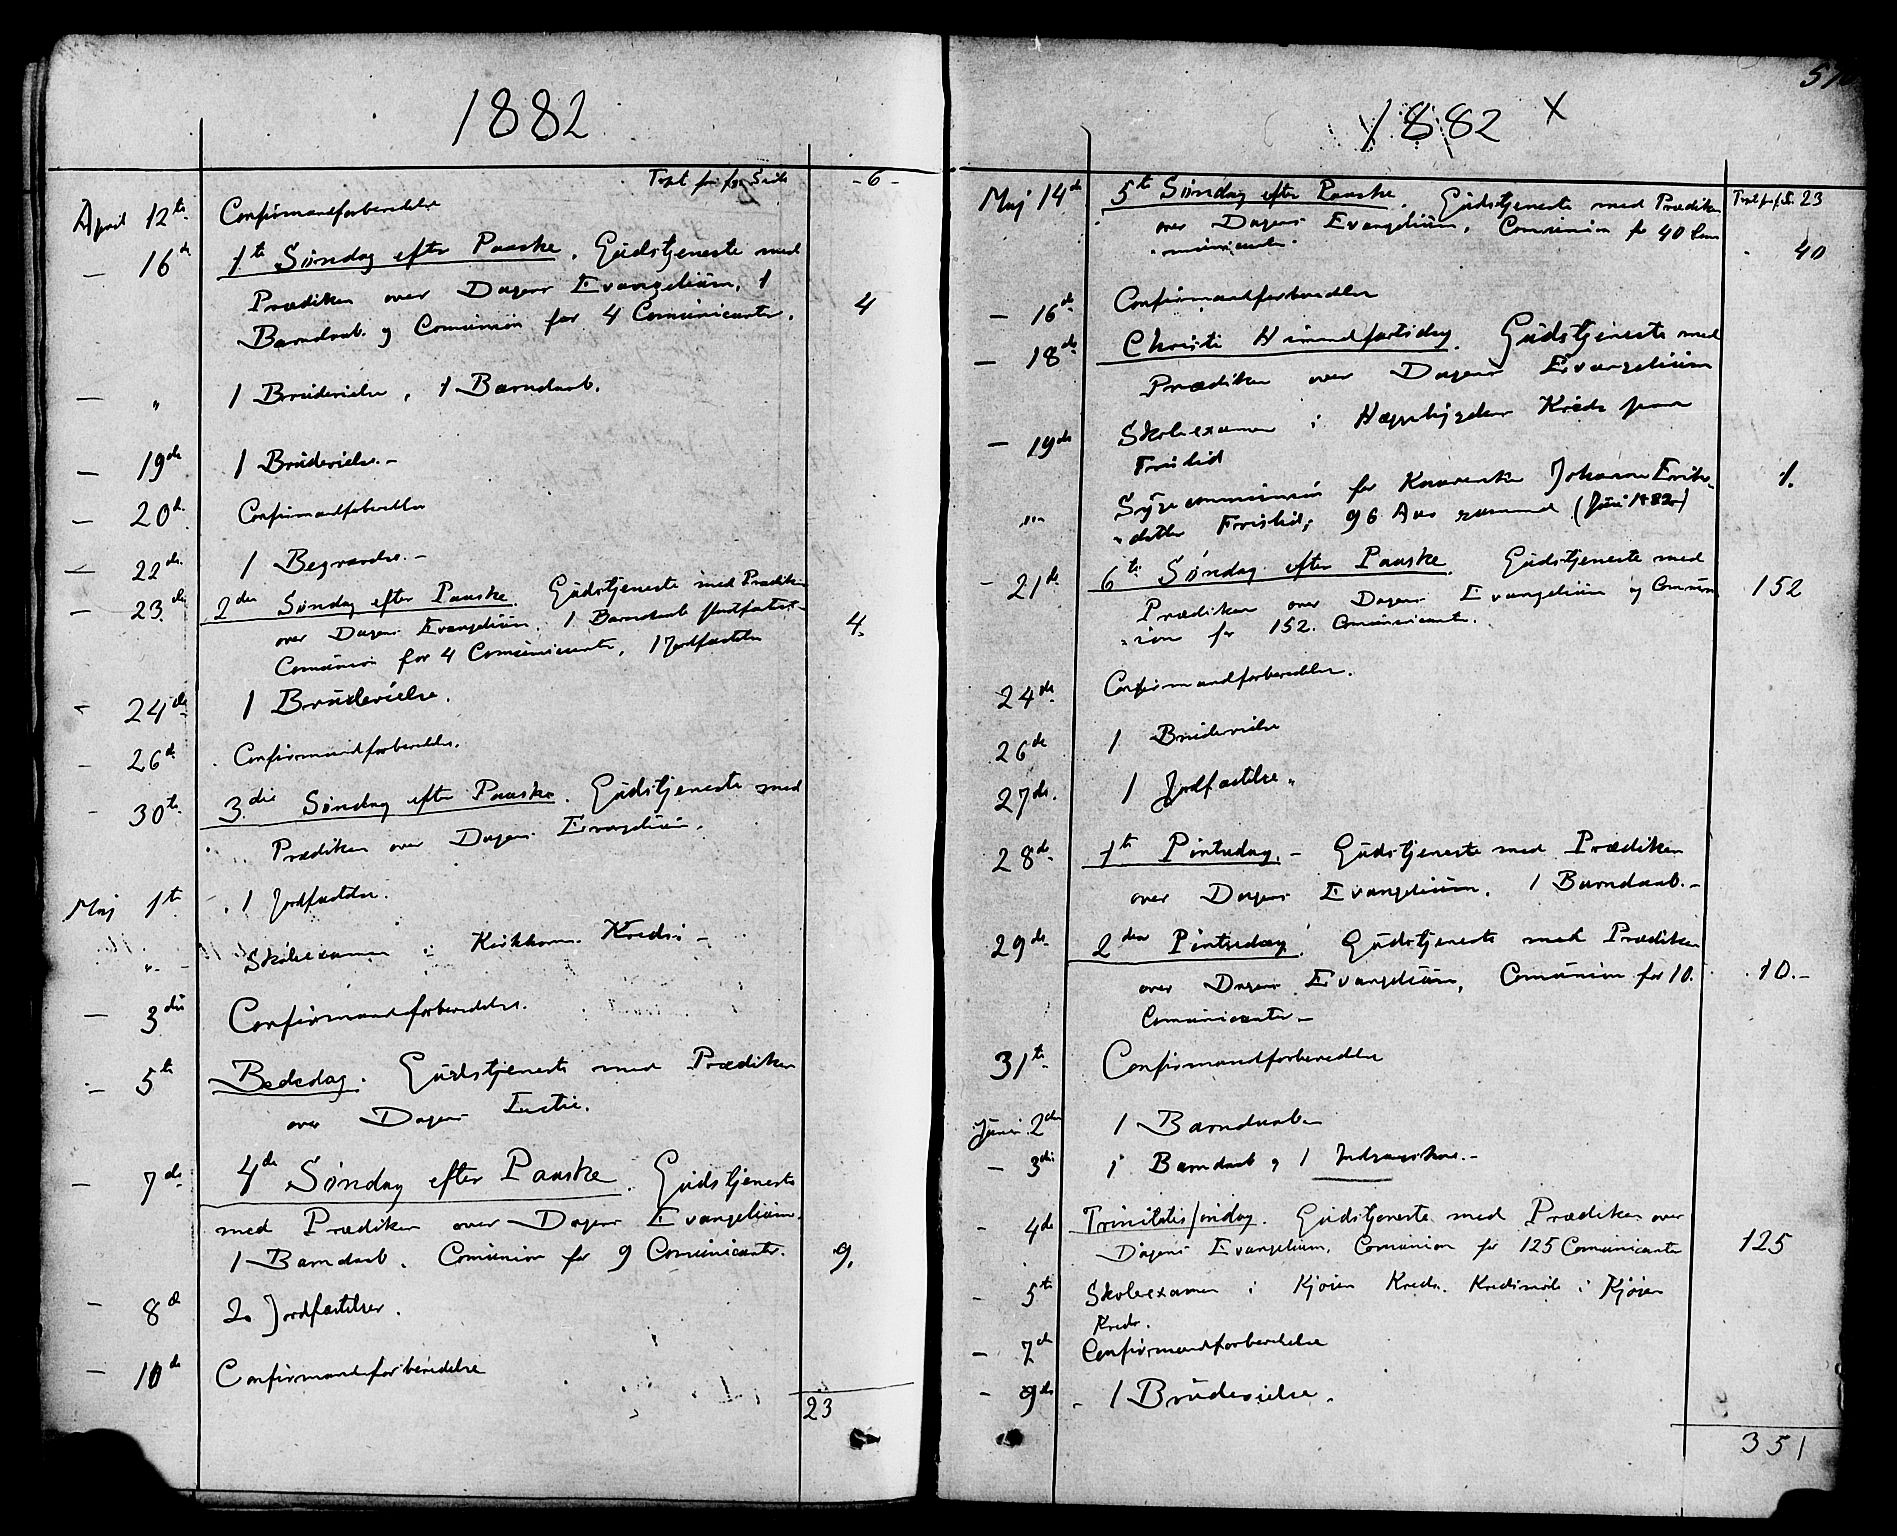 1882
Tvst fra for Side - 6 -
April 12te Confirmandforberedelse
— 16de 1te Søndag efter Paaske. Gudstjeneste med
Prædiken over Dagens Evangelium, 1
Barndaab og Comunion for 4 Comunicanter. 4
— „ 1 Brudevielse, 1 Barndaab.
— 19de 1 Brudevielse. –
— 20de Confirmandforberedelse
— 22de 1 Begravelse. –
— 23de 2den Søndag efter Paaske. Gudstjeneste med Prædiken
over Dagens Evangelium. 1 Barndaab
Comunion for 4 Comunicanter, 1 Jordfæstelse 4.
- 24de 1 Brudevielse.
- 26de Confirmandforberedelse.
- 30te 3die Søndag efter Paaske. Gudstjeneste med
Prædiken over Dagens Evangelium.
Maj 1te 1 Jordfæstelse.
„ - Skoleexamen i Kirkhorns Kreds –
— 3die Confirmandforberedelse.
— 5te Bededag. Gudstjeneste med Prædiken
over Dagens Lectie.
— 7de 4de Søndag efter Paaske. Gudstjeneste
med Prædiken over Dagens Evangelium.
1 Barndaab. Comunion for 9 Comunicanter. 9.
— 8de 2 Jordfæstelser.
— 10de Confirmandforberedelse
23
1882 X
Maj 14de 5te Søndag efter Paaske. Gudstjeneste med Prædiken Tvst fr. f. S. 23
over Dagens Evangelium. Comunion for 40 Com
municanter. 40
— 16de Confirmandforberedelse
— 18de Christi Himmelfartsdag. Gudstjeneste med
Prædiken over Dagens Evangelium
— 19de Skoleexamen i Kreds paa
Fristid
„ Sygecommunion for Johanne Eriks-
datter Fristid, 96 Aar gammel (Juni 1882) 1.
- 21de 6te Søndag efter Paaske. Gudstjeneste med
Prædiken over Dagens Evangelium og Comun 152
ion for 152 Comunicanter.
24de Confirmandforberedelse.
26de 1 Brudevielse
27de 1 Jordfæstelse.
28de 1te Pintsedag. – Gudstjeneste med Prædiken
over Dagens Evangelium. 1 Barndaab. –
29de 2den Pintsedag. Gudstjeneste med Prædiken
over Dagens Evangelium, Comunion for 10. 10. –
Comunicanter –
31te Confirmandforberedelse
Juni 2den 1 Barndaab
— 3die 1 Barndaab, 1 Introduktion. –
- 4de Trinitatissøndag. Gudstjeneste med Prædiken over
Dagens Evangelium. Comunion for 125 Comunicanter 125
- 5te Skoleexamen i Kjøsen Kreds. Kredsmøde i Kjøsen
Kreds.
— 7de Confirmandforberedelse
- 9de 1 Brudevielse.
351